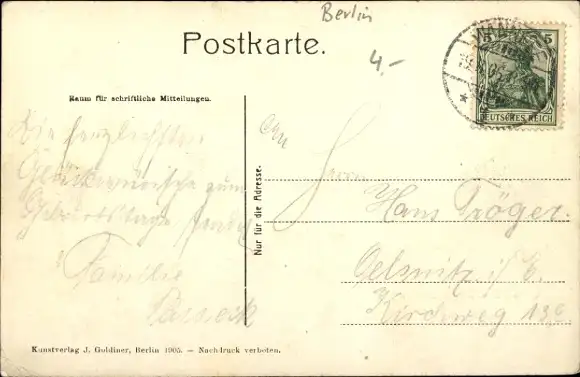 Berlin
Postkarte.
4.-
5
DEUTSCHES REICH
Raum für schriftliche Mitteilungen.
Die herzlichsten
Glückwünsche zum
Geburtstage sendet
Familie
Nur für die Adresse.
An
Herrn
Hans Tröger.
Oelsnitz i/E.
Kirchweg 13c
Kunstverlag J. Goldiner, Berlin 1905. — Nachdruck verboten.